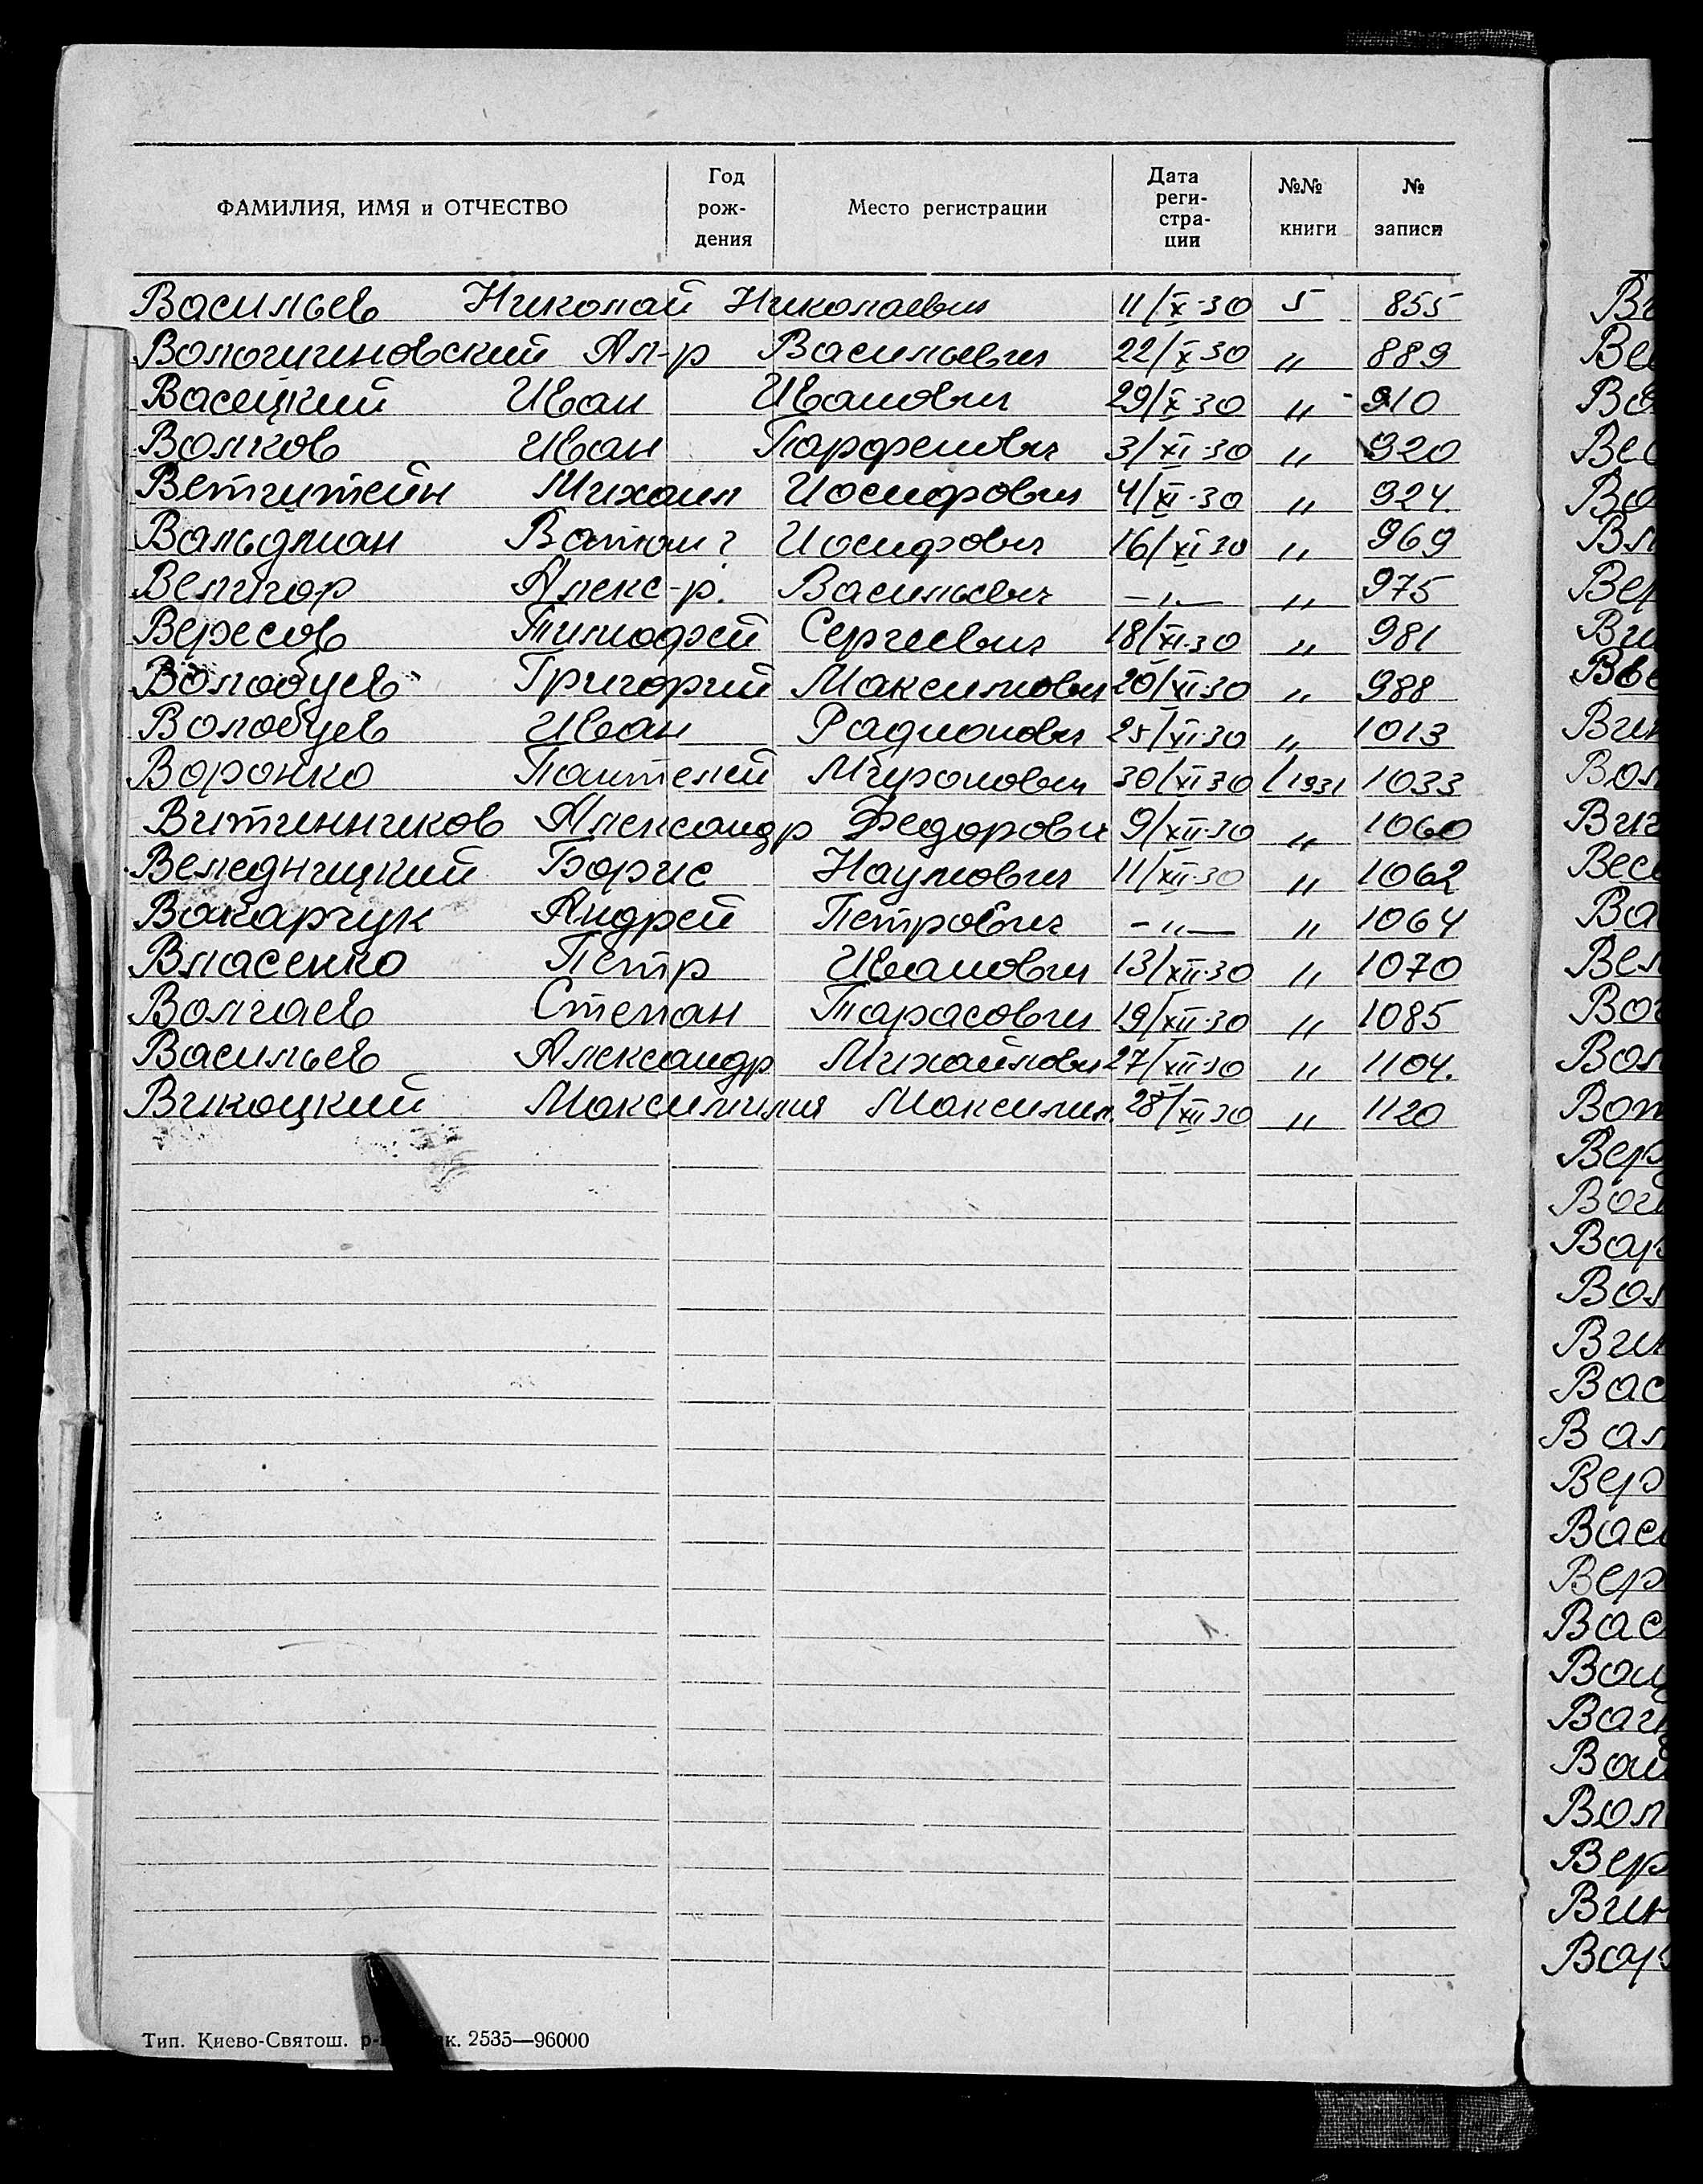 ФАМИЛИЯ, ИМЯ и ОТЧЕСТВО Год рож- дения Место регистрации Дата реги- стра- ции №№ книги № записи
Васильев Николай Николаевич 11/X-30 5 855
Ал-р Васильевич 22/X-30 " 889
Васецкий Иван Иванович 29/X-30 " 910
Волков Иван Парфенович 3/XI-30 " 920
Михаил Иосифович 4/XI-30 " 924.
Вальдман Иосифович 16/XI 30 " 969
Велигор Алекс-р. Васильевич -"- " 975
Вересов Тимофей Сергеевич 18/XI-30 " 981
Волобуев Григорий Максимович 20/XI 30 " 988
Волобуев Иван Радионович 25/XI-30 " 1013
Воронко Пантелей Миронович 30/XI 30 1/1931 1033
Витинников Александр Федорович 9/XII-30 " 1060
Веледницкий Борис Наумович 11/XII-30 " 1062
Вакарчук Андрей Петрович -"- " 1064
Власенко Петр Иванович 13/XII-30 " 1070
Волчаев Степан Тарасович 19/XII-30 " 1085
Васильев Александр Михайлович 27/XII-30 " 1104.
Максимилия Максимил. 28/XII 30 " 1120
Тип. Киево-Святош. 2535—96000